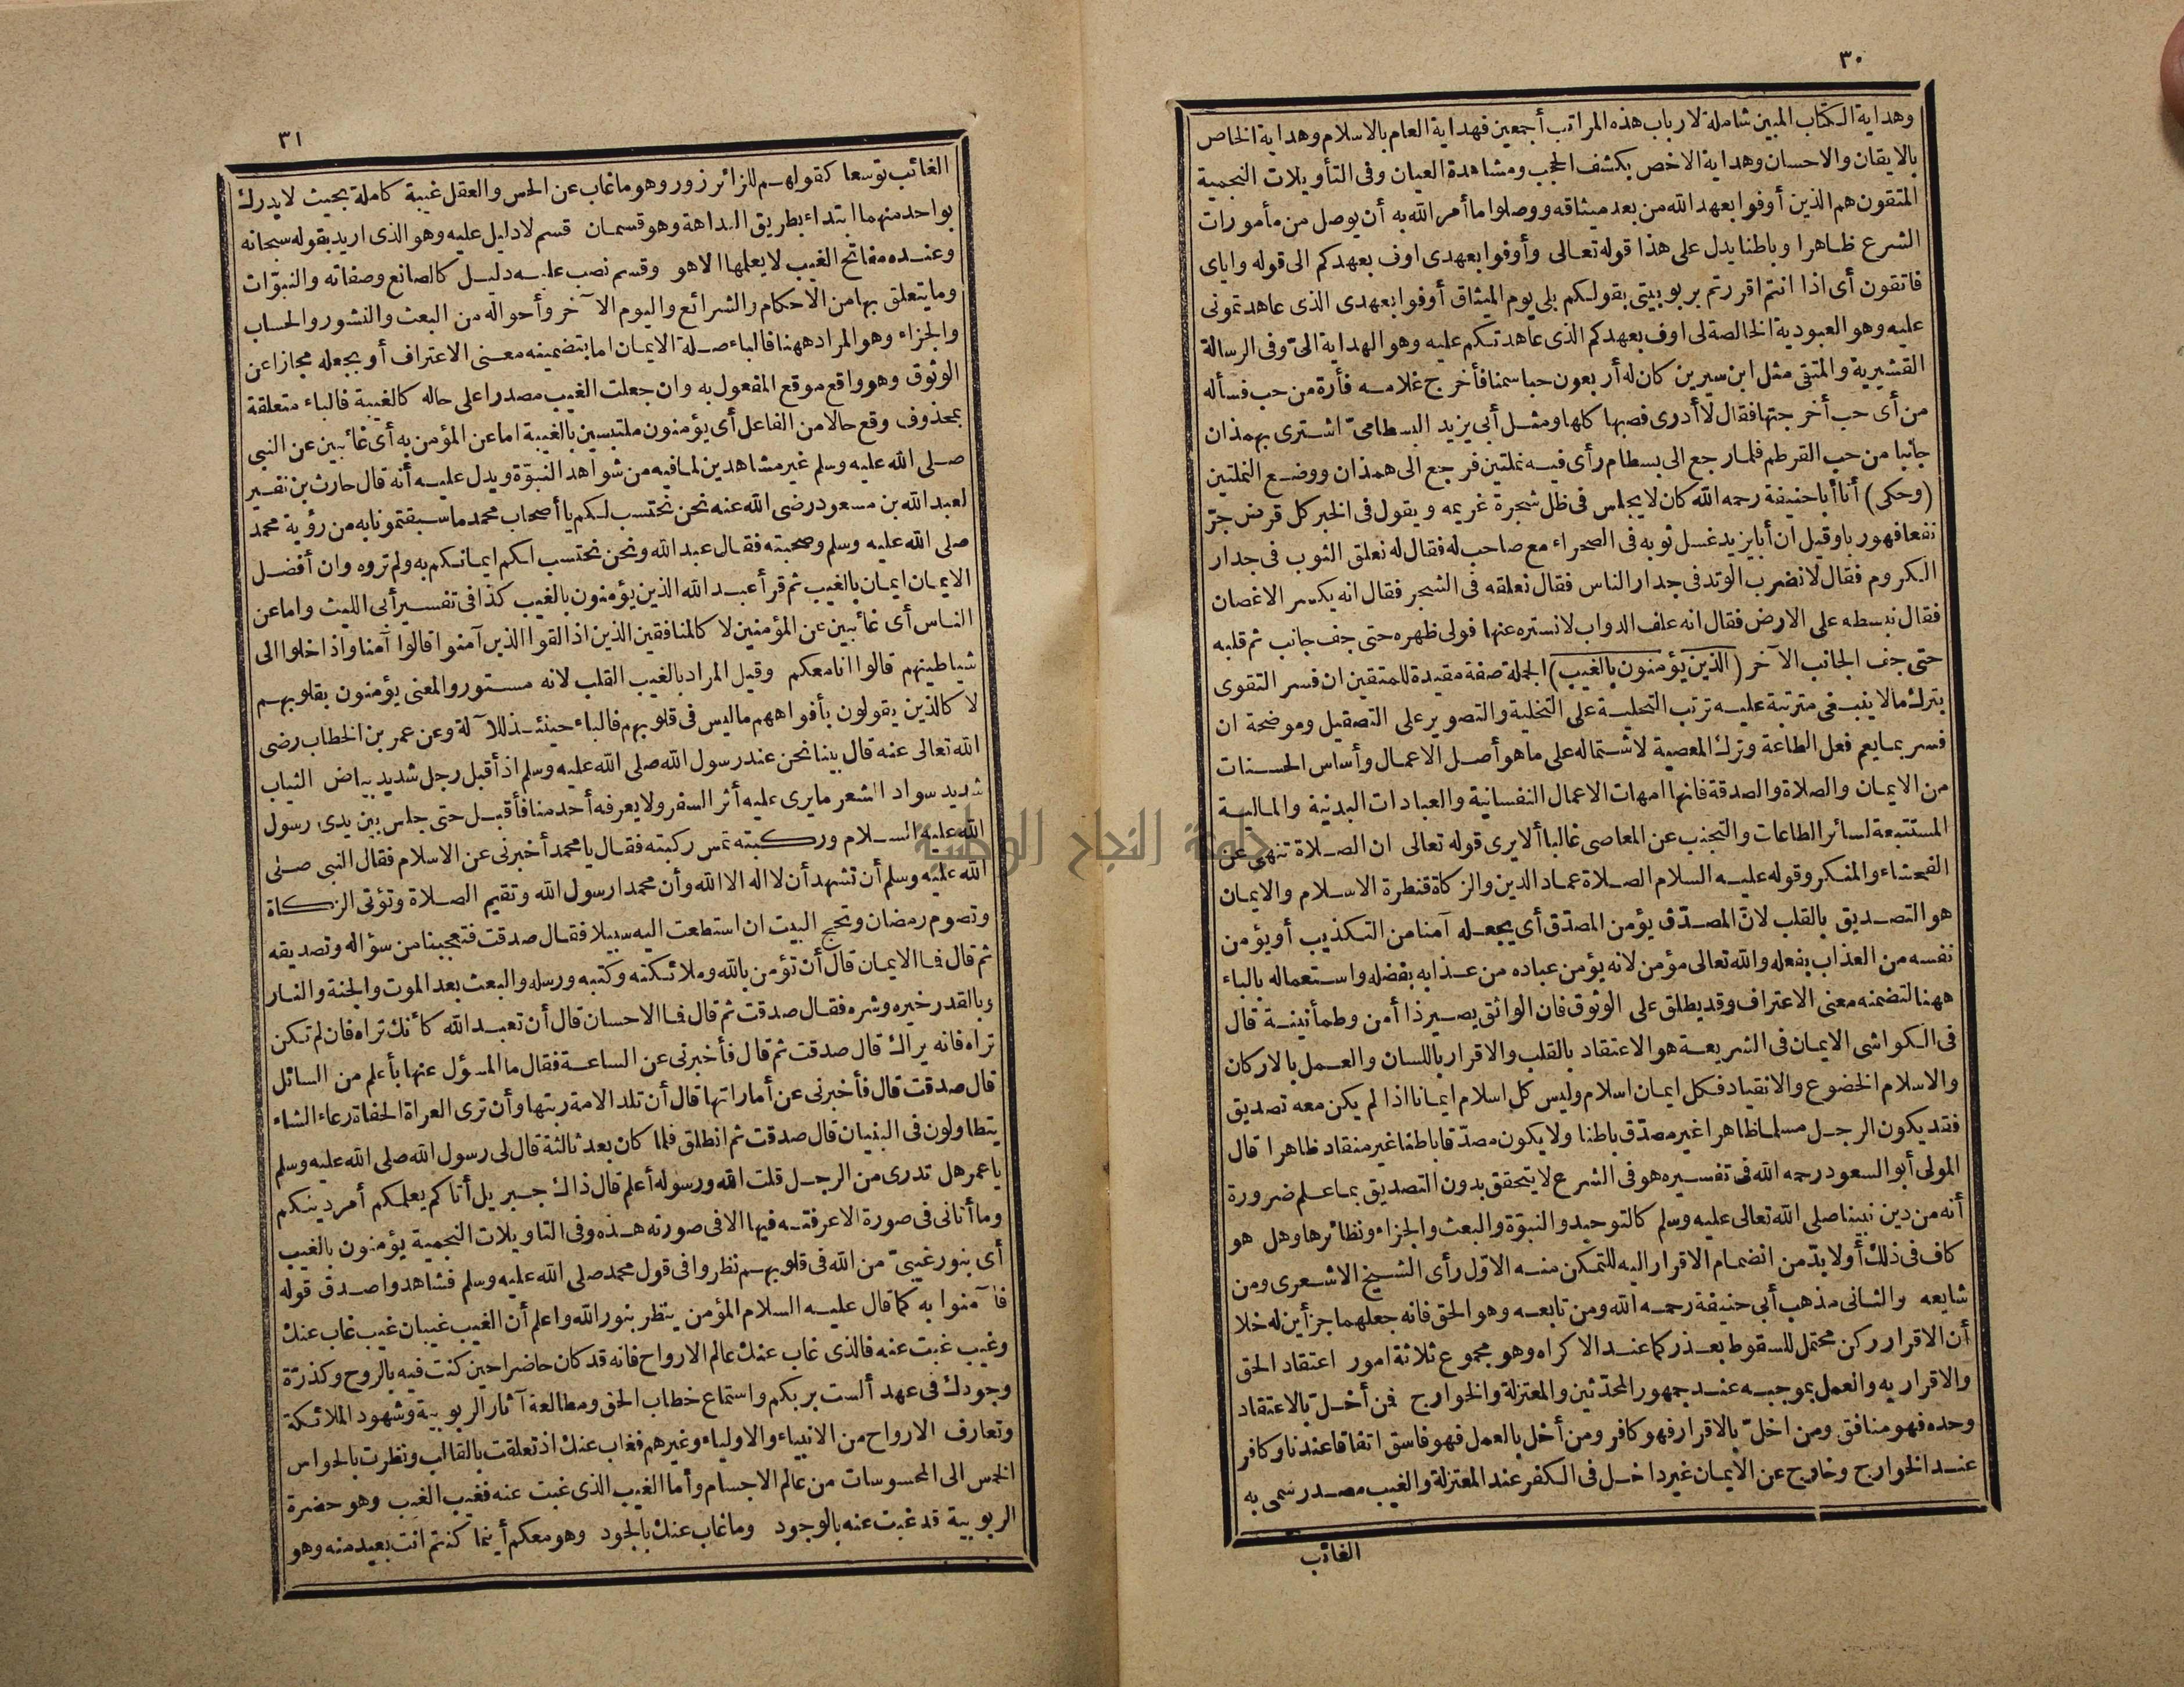 ٣٠
وهداية الكتاب المبين شاملة لارباب هذه المراتب أجمعين فهداية العام بالاسلام وهداية الخاص
بالايقان والاحسان وهداية الاخص بكشف الحجب ومشاهدة العيان وفى التأويلات النجمية
المتقون هم الذين أوفوا بعهد الله من بعد ميثاقه ووصلوا ما أمر الله به أن يوصل من مأمورات
الشرع ظاهرا وباطنا يدل على هذا قوله تعالى وأوفوا بعهدى اوف بعهدكم الى قوله واياى
فاتقون أى اذا انتم اقررتم بربوبيتى بقولكم بلى يوم الميثاق أوفوا بعهدى الذى عاهدتمونى
عليه وهو العبودية الخالصة لى اوف بعهدكم الذى عاهدتكم عليه وهو الهداية الىّ وفى الرسالة
القشيرية والمتقى مثل ابن سيرين كان له أربعون حبا سمنا فأخرج غلامه فأرة من حب فسأله
من أى حب أخرجتها فقال لا أدرى فصبها كلها ومثل أبى يزيد البسطامىّ اشترى بهمذان
جانبا من حب القرطم فلما رجع الى بسطام رأى فيه نملتين فرجع الى همذان ووضع النملتين
(وحكى) أن أبا حنيفة رحمه الله كان لا يجلس فى ظل شجرة غريمه ويقول فى الخبر كل قرض جرّ
نفعا فهو ربا وقيل ان أبا يزيد غسل ثوبه فى الصحراء مع صاحب له فقال له نعلق الثوب فى جدار
الكروم فقال لا نضرب الوتد فى جدار الناس فقال نعلقه فى الشجر فقال انه يكسر الاغصان
فقال نبسطه على الارض فقال انه علف الدواب لا نستره عنها فولى ظهره حتى جف جانب ثم قلبه
حتى جف الجانب الآخر (الذين يؤمنون بالغيب) الجملة صفة مقيدة للمتقين ان فسر التقوى
بترك مالا ينبغى مترتبة عليه ترتب التحلية على التخلية والتصوير على التصقيل وموضحة ان
فسر بما يعم فعل الطاعة وترك المعصية لاشتماله على ما هو أصل الاعمال وأساس الحسنات
من الايمان والصلاة والصدقة فانها امهات الاعمال النفسانية والعبادات البدنية والمالية
المستتبعة لسائر الطاعات والتجنب عن المعاصى غالبا ألا يرى قوله تعالى ان الصلاة تنهى عن
الفحشاء والمنكر وقوله عليه السلام الصلاة عماد الدين والزكاة قنطرة الاسلام والايمان
هو التصديق بالقلب لانّ المصدّق يؤمن المصدّق أى يجعله آمنا من التكذيب أو يؤمن
نفسه من العذاب بفعله والله تعالى مؤمن لانه يؤمن عباده من عذابه بفضله واستعماله بالباء
ههنا لتضمنه معنى الاعتراف وقد يطلق على الوثوق فان الواثق يصير ذا أمن وطمأنينة قال
فى الكواشى الايمان فى الشريعة هو الاعتقاد بالقلب والاقرار باللسان والعمل بالاركان
والاسلام الخضوع والانقياد فكل ايمان اسلام وليس كل اسلام ايمانا اذا لم يكن معه تصديق
فقد يكون الرجل مسلما ظاهرا غير مصدّق باطنا ولا يكون مصدّقا باطنا غير منقاد ظاهرا قال
المولى أبو السعود رحمه الله فى تفسيره هو فى الشرع لا يتحقق بدون التصديق بما علم ضرورة
أنه من دين نبينا صلى الله تعالى عليه وسلم كالتوحيد والنبوّة والبعث والجزاء ونظائرها وهل هو
كاف فى ذلك أو لا بدّ من انضمام الاقرار اليه للتمكن منه الاوّل رأى الشيخ الاشعرى ومن
شايعه والثانى مذهب أبى حنيفة رحمه الله ومن تابعه وهو الحق فانه جعلهما جزأين له خلا
أن الاقرار ركن محتمل للسقوط بعذر كما عند الاكراه وهو مجموع ثلاثة امور اعتقاد الحق
والاقرار به والعمل بموجبه عند جمهور المحدّثين والمعتزلة والخوارج فمن أخلّ بالاعتقاد
وحده فهو منافق ومن اخلّ بالاقرار فهو كافر ومن أخل بالعمل فهو فاسق اتفاقا عندنا وكافر
عند الخوارج وخارج عن الايمان غير داخل فى الكفر عند المعتزلة والغيب مصدر سمى به
الغائب
٣١
الغائب توسعا كقولهم للزائر زور وهو ما غاب عن الحس والعقل غيبة كاملة بحيث لا يدرك
بواحد منهما ابتداء بطريق البداهة وهو قسمان قسم لا دليل عليه وهو الذى اريد بقوله سبحانه
وعنده مفاتح الغيب لا يعلمها الا هو وقسم نصب عليه دليل كالصانع وصفاته والنبوّات
وما يتعلق بها من الاحكام والشرائع واليوم الآخر وأحواله من البعث والنشور والحساب
والجزاء وهو المراد ههنا فالباء صلة الايمان اما بتضمينه معنى الاعتراف أو بجعله مجازا عن
الوثوق وهو واقع موقع المفعول به وان جعلت الغيب مصدرا على حاله كالغيبة فالباء متعلقة
بمحذوف وقع حالا من الفاعل أى يؤمنون ملتبسين بالغيبة اما عن المؤمن به أى غائبين عن النبى
صلى الله عليه وسلم غير مشاهدين لما فيه من شواهد النبوّة ويدل عليه أنه قال حارث بن نقير
لعبد الله بن مسعود رضى الله عنه نحن نحتسب لكم يا أصحاب محمد ما سبقتمونا به من رؤية محمد
صلى الله عليه وسلم وصحبته فقال عبد الله ونحن نحتسب لكم ايمانكم به ولم تروه وان أفضل
الايمان ايمان بالغيب ثم قرأ عبد الله الذين يؤمنون بالغيب كذا فى تفسير أبى الليث واما عن
الناس أى غائبين عن المؤمنين لا كالمنافقين الذين اذا لقوا الذين آمنوا قالوا آمنا واذا خلوا الى
شياطينهم قالوا انا معكم وقيل المراد بالغيب القلب لانه مستور والمعنى يؤمنون بقلوبهم
لا كالذين يقولون بأفواههم ما ليس فى قلوبهم فالباء حينئذ للآلة وعن عمر بن الخطاب رضى
الله تعالى عنه قال بينا نحن عند رسول الله صلى الله عليه وسلم اذ أقبل رجل شديد بياض الثياب
شديد سواد الشعر ما يرى عليه أثر السفر ولا يعرفه أحد منا فأقبل حتى جلس بين يدى رسول
الله عليه السلام وركبته تمس ركبته فقال يا محمد أخبرنى عن الاسلام فقال النبى صلى
الله عليه وسلم أن تشهد أن لا اله الا الله وأن محمدا رسول الله وتقيم الصلاة وتؤتى الزكاة
وتصوم رمضان وتحج البيت ان استطعت اليه سبيلا فقال صدقت فتعجبنا من سؤاله وتصديقه
ثم قال فما الايمان قال أن تؤمن بالله وملائكته وكتبه ورسله والبعث بعد الموت والجنة والنار
وبالقدر خيره وشره فقال صدقت ثم قال فما الاحسان قال أن تعبد الله كأنك تراه فان لم تكن
تراه فانه يراك قال صدقت ثم قال فأخبرنى عن الساعة فقال ما المسؤل عنها بأعلم من السائل
قال صدقت قال فأخبرنى عن أماراتها قال أن تلد الامة ربتها وأن ترى العراة الحفاة رعاء الشاء
يتطاولون فى البنيان قال صدقت ثم انطلق فلما كان بعد ثالثة قال لى رسول الله صلى الله عليه وسلم
يا عمر هل تدرى من الرجل قلت الله ورسوله أعلم قال ذاك جبريل أتاكم يعلمكم أمر دينكم
وما أتانى فى صورة الا عرفته فيها الا فى صورته هذه وفى التاويلات النجمية يؤمنون بالغيب
أى بنور غيبىّ من الله فى قلوبهم نظروا فى قول محمد صلى الله عليه وسلم فشاهدوا صدق قوله
فآمنوا به كما قال عليه السلام المؤمن ينظر بنور الله واعلم أن الغيب غيبان غيب غاب عنك
وغيب غبت عنه فالذى غاب عنك عالم الارواح فانه قد كان حاضرا حين كنت فيه بالروح وكذرّة
وجودك فى عهد ألست بربكم واستماع خطاب الحق ومطالعة آثار الربوبية وشهود الملائكة
وتعارف الارواح من الانبياء والاولياء وغيرهم فغاب عنك اذ تعلقت بالقالب ونظرت بالحواس
الخمس الى المحسوسات من عالم الاجسام وأما الغيب الذى غبت عنه فغيب الغيب وهو حضرة
الربوبية قد غبت عنه بالوجود وما غاب عنك بالجود وهو معكم أينما كنتم انت بعيد منه وهو